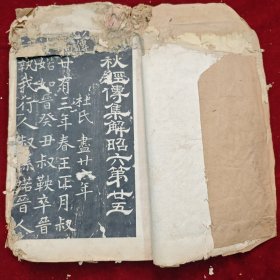 秋經傳集解昭六第廿五
杜氏 盡廿六年
廿有三年春王正月叔
婼如晉癸丑叔鞅卒晉
執我行人叔孫婼晉人